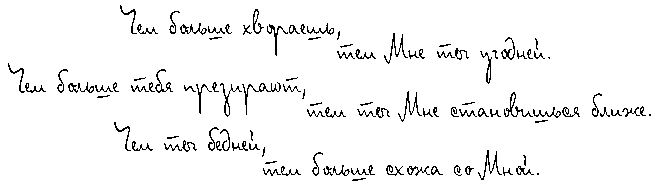 Чем больше хвораешь,
тем Мне ты угодней.
Чем больше тебя презирают,
тем ты Мне становишься ближе.
Чем ты бедней,
тем больше схожа со Мной.